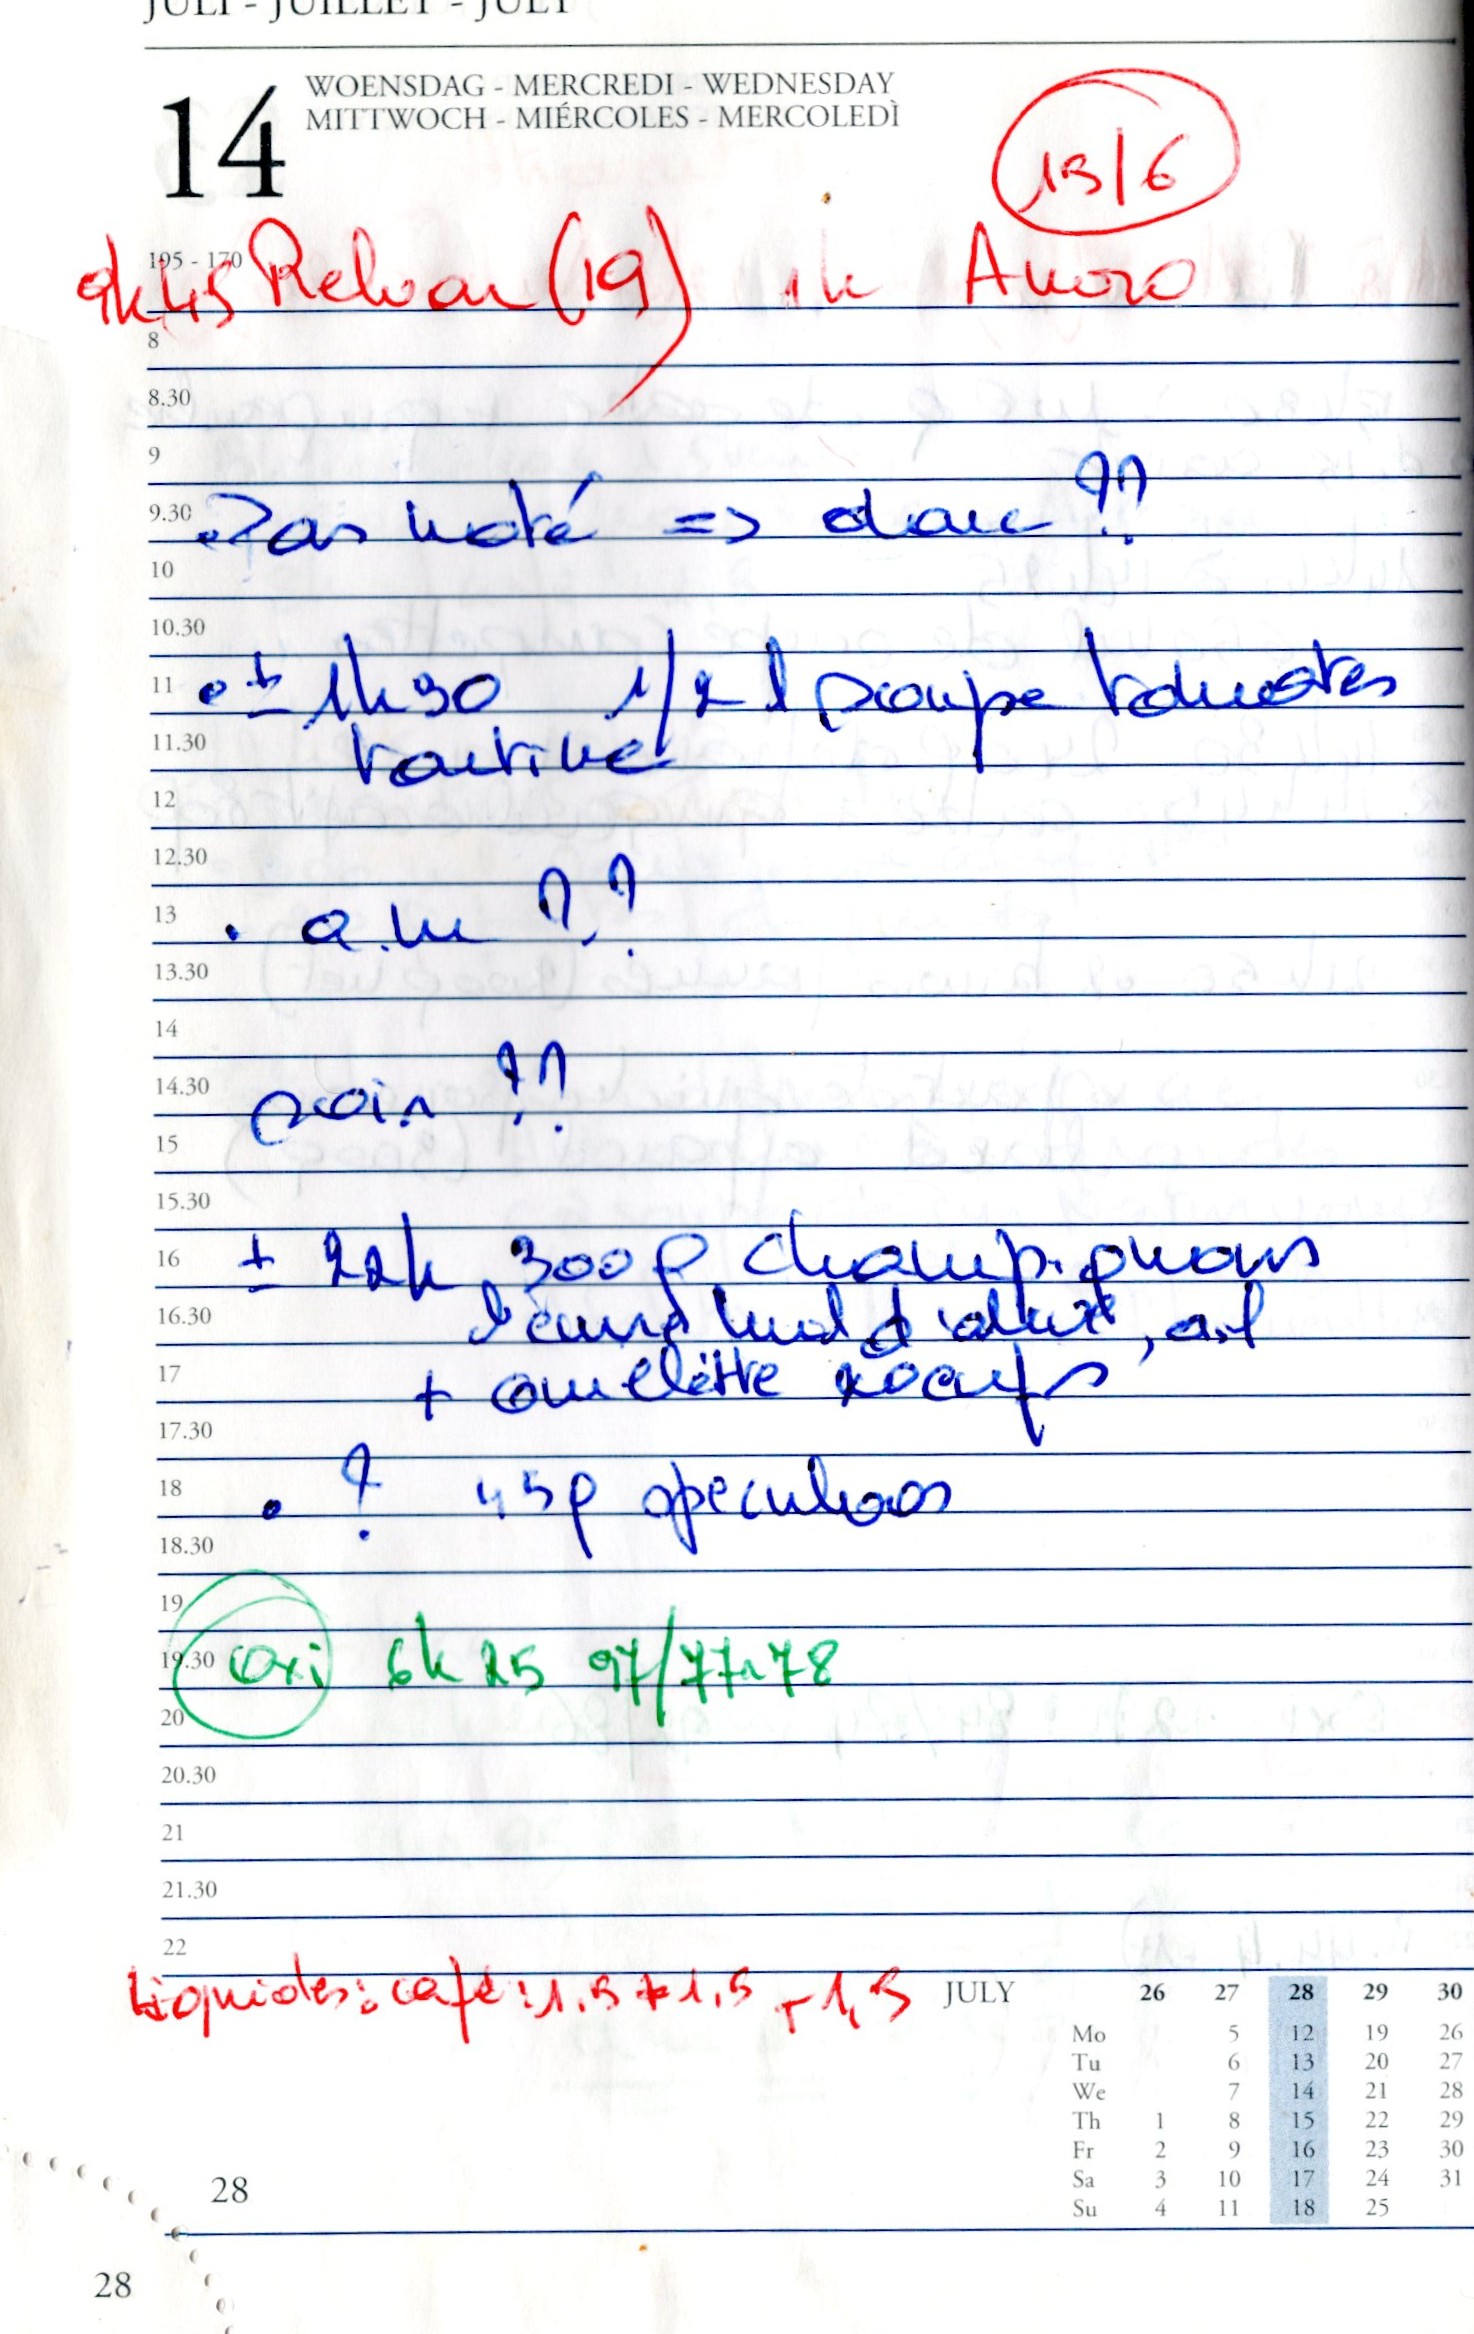 JULI - JUILLET - JULY
14
WOENSDAG - MERCREDI - WEDNESDAY
MITTWOCH - MIÉRCOLES - MERCOLEDÌ
13/6
195 - 170
9h45 Relvar (19) 1h Anoro
8
8.30
9
9.30 . Pas noté => donc ??
10
10.30
11 . ± 1h30 1/2 l soupe tomates
11.30 tartine
12
12.30
13 . a.m ??
13.30
14
14.30 soir ??
15
15.30
16 ± 22h 300g champignons
16.30 , ail
17 + omelette 2 oeufs
17.30
18 . ? 45g speculoos
18.30
19
19.30 oxi 6h25 97/77-78
20
20.30
21
21.30
22
Liquides: café: 1.5 + 1,5 + 1,5
JULY 26 27 28 29 30
Mo 5 12 19 26
Tu 6 13 20 27
We 7 14 21 28
Th 1 8 15 22 29
Fr 2 9 16 23 30
Sa 3 10 17 24 31
Su 4 11 18 25
28
28